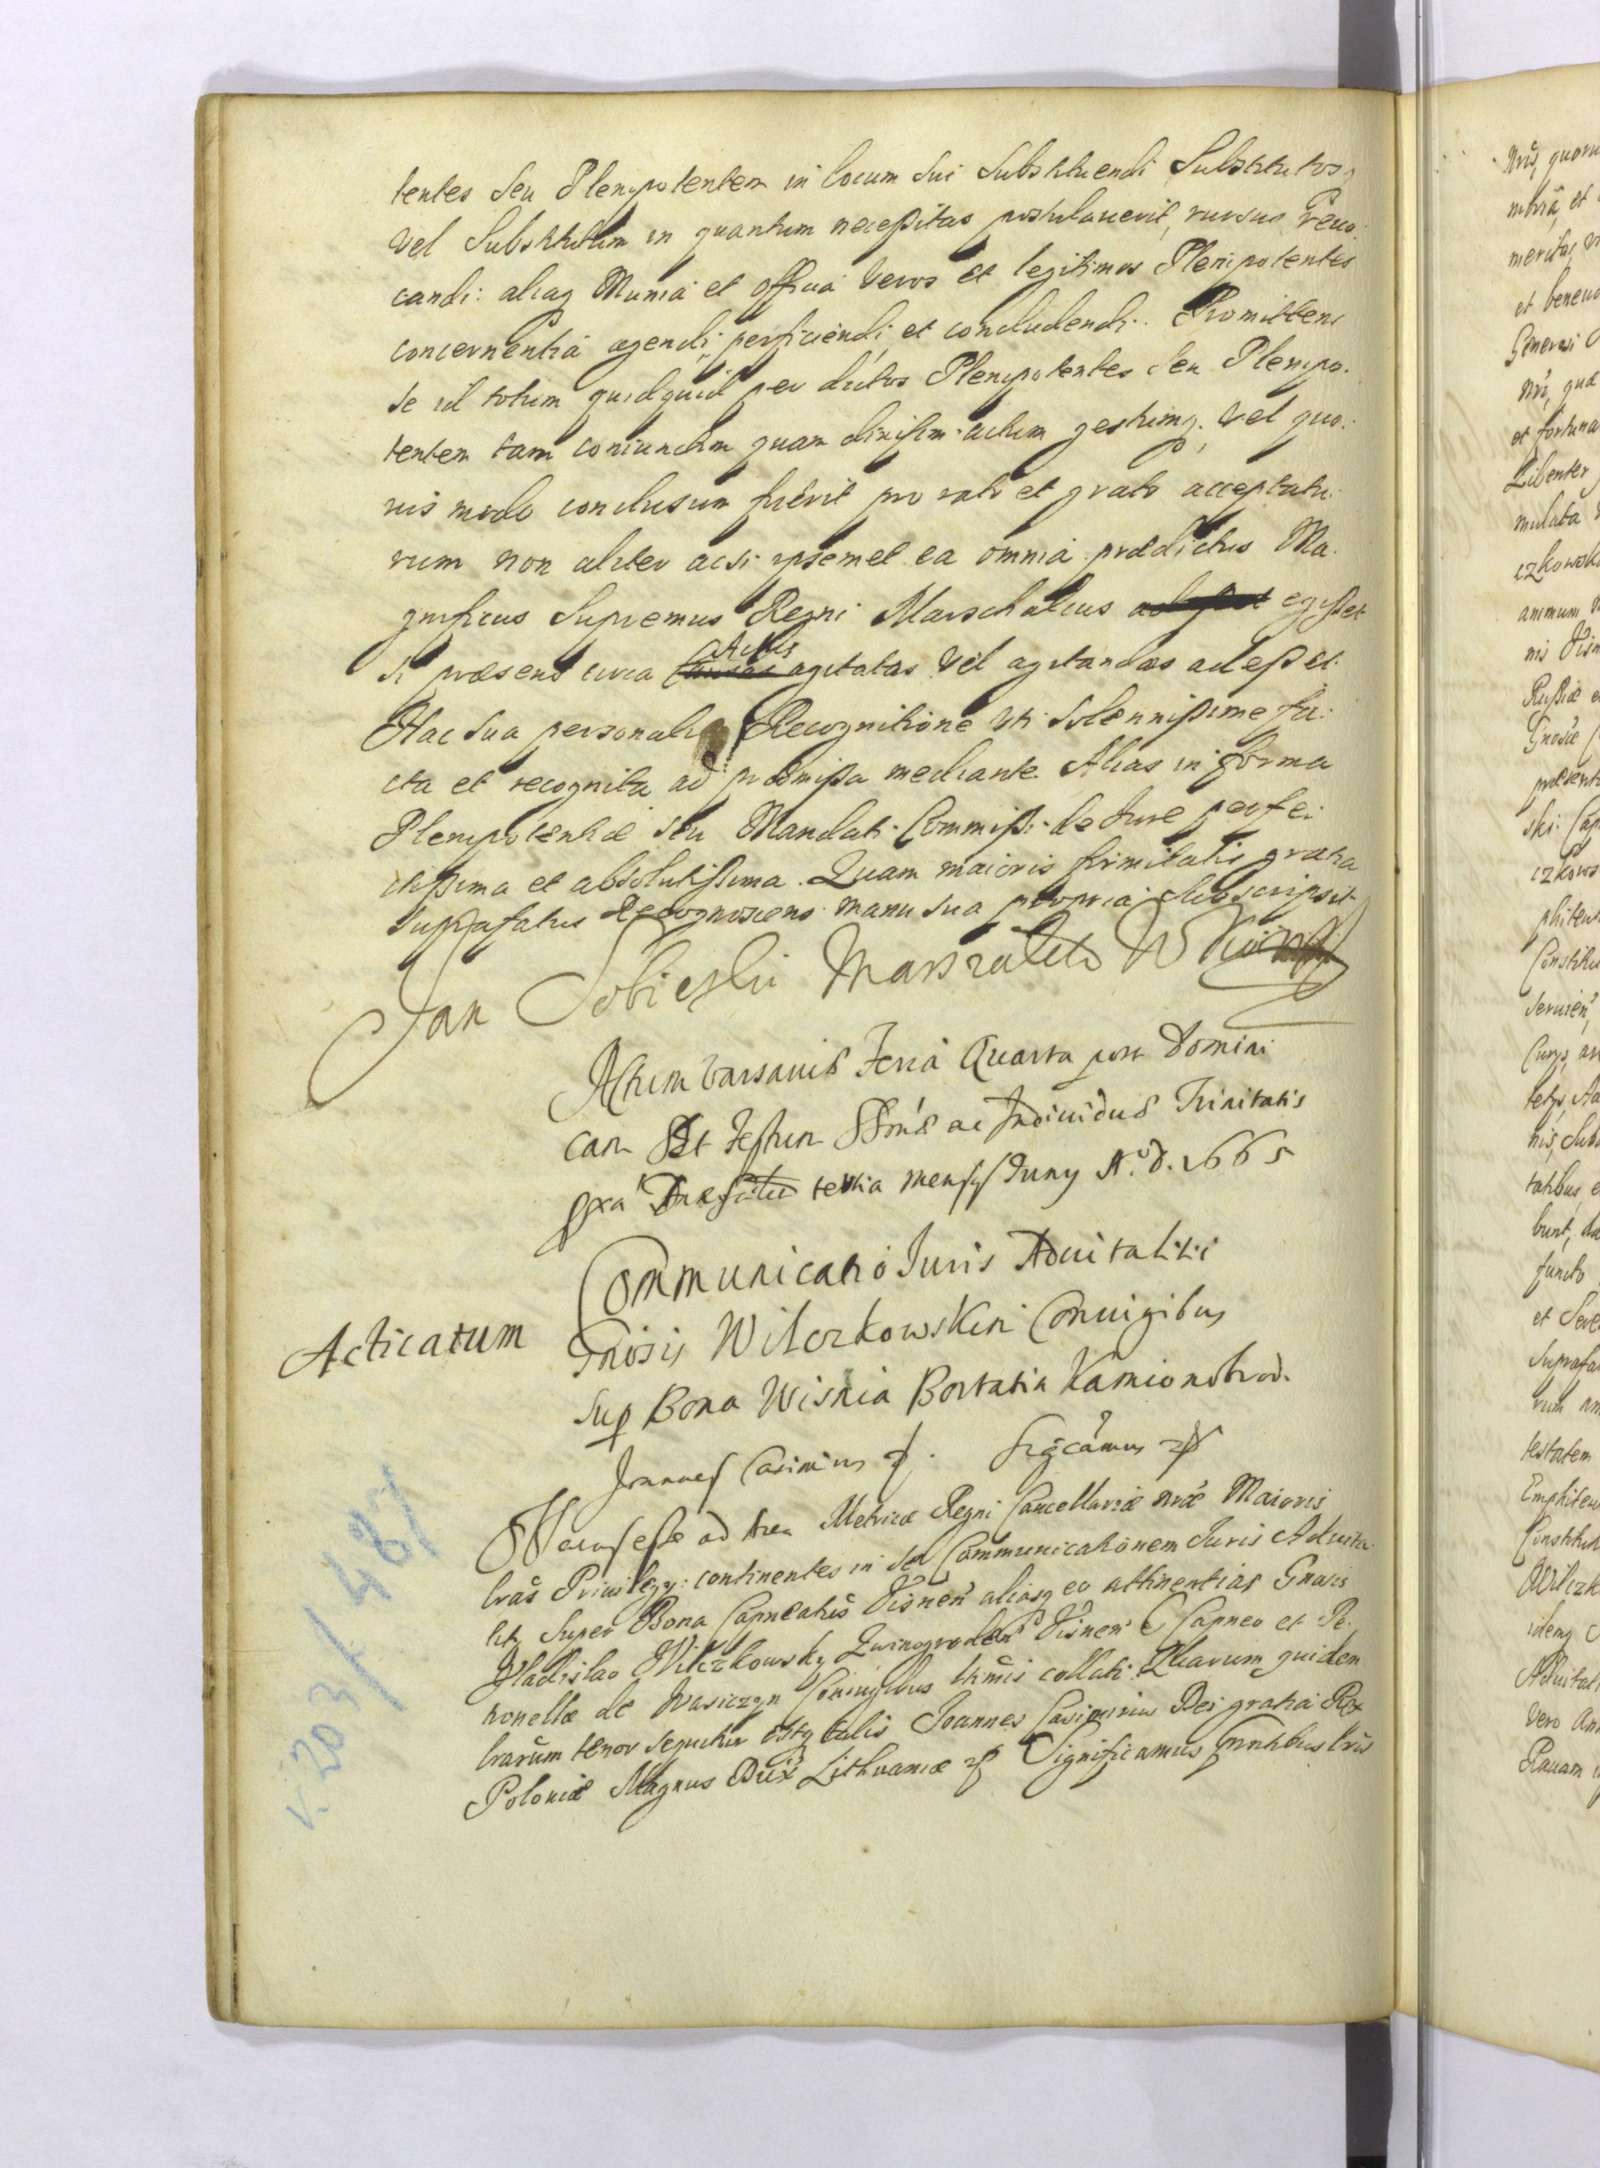 tentes seu Plenipotentem in locum sui substituendi Substitutos,
vel Substitutum in quantum necessitas postulauerit, rursus reuo
candi: aliaq Munia et officia veros et legitimos Plenipotentes
concernentia agendi, perficiendi et concludendi. Promittens
se id totum quidquid per dictos Plenipotentes seu Plenipo.
tentem tam coniunctim quam diuisim actum gestumq, vel quo.
vis modo conclusum fuerit pro rato et grato acceptatu
rum non aliter acsi ipsemet ea omnia prædictus Ma.
gnificus Supremus Regni Marschalcus egisset
Actis
si præsens circa causas agitatas vel agitandas adesset.
Hac sua personali Recognitione uti solennissime fa:
cta et recognita ad præmissa mediante. Alias in forma
Plenipotentiæ seu Mandati Commissi de Jure perfe:
ctissima et absolutissima. Quam maioris firmitatis gratia
suprafatus Recognoscens manu sua propria subscripsit.
Jan Sobieski Marszałek W
Actum Varsauiæ Feria Quarta post Domini
cam Festum Ssmæ ac Indiuiduæ Trinitatis
pxa tertia mensis Juny A.D. 1665
Communicatio Iuris Aduitalitii
Acticatum
Gnosis Wilczkowskin Coniugibus
Sup Bona Wisnia Bortatin Kamionobrod.
Joannes Casimirus Sigcamus
ad Acta Metricæ Regni Cancellariæ nræ Maioris
lras Priuilegy: continentes in se Communicationem Iuris Aduita
lity Super Bona Capneatus Visnen aliasq eo attinentias Gnosis
Vladislao Wilczkowsky Zwinogroden Visnen Capneo et Pe.
tronellæ de Iwasiczyn Coniugibus ltimis collati. Quarum quidem
lrarum tenor sequitur estq talis Joannes Casimirus Dei gratia Rex
Poloniæ Magnus Dux Lithuaniæ Significamus pntibus lris
v. 203 / 487